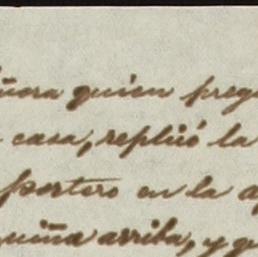 ñora quien preg
casa, replicó la
portero en la a
quiña arriba, y qu